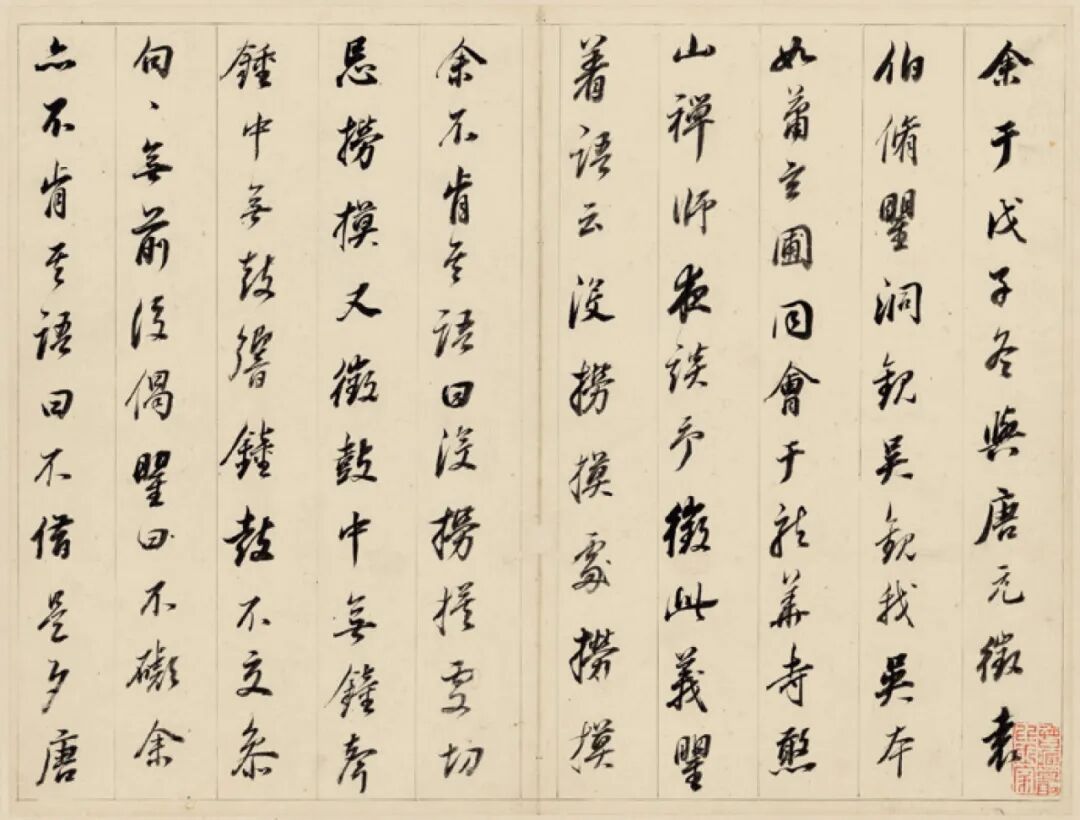 余于戊子冬與唐元徵袁
伯脩瞿洞觀吳觀我吳本
如蕭玄圃同會于龍華寺憨
山禪師夜談予徵此義瞿
着語云沒撈摸處撈摸
余不肯其語曰沒撈摸處切
忌撈摸又徵鼓中無鐘響
鍾中無鼓響鐘鼓不交參
句〻無前後偈瞿曰不礙余
亦不肯其語曰不借是夕唐